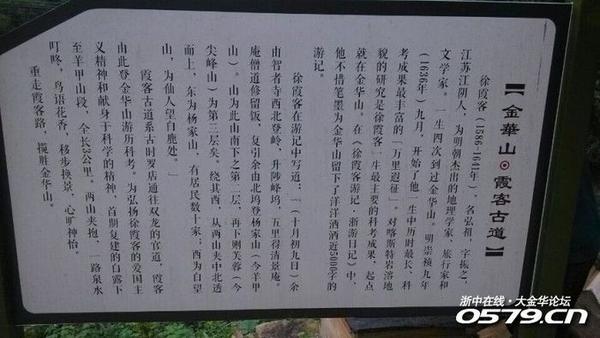 【金華山◎霞客古道】
徐霞客（1586-1641年），名弘祖，字振之，
江苏江阴人，为明朝杰出的地理学家、旅行家和
文学家。一生四次到过金华山。明崇祯九年
（1636年）九月，开始了他一生中历时最长、科
考成果最丰富的「万里遐征」。对喀斯特岩溶地
貌的研究是徐霞客一生最主要的科考成果，起点
就在金华山。在《徐霞客游记·浙游日记》中，
他不惜笔墨为金华山留下了洋洋洒洒近5000字的
游记。
徐霞客在游记中写道：「（十月初九日）余
由智者寺西北登岭，升陟峰坞，五里得清景庵。
庵僧道修留饭，复引余由北坞登杨家山（今羊甲
山）。山为此山南下之第二层，再下则芙蓉（今
尖峰山）为第三层矣。绕其西，从两山夹中北透
而上，东为杨家山，有居民数十家；西为白望
山，为仙人望白鹿处。」
霞客古道系古时罗店通往双龙的官道，霞客
由此登金华山游历科考。为弘扬徐霞客的爱国主
义精神和献身于科学的精神，首期复建的白露下
至羊甲山段，全长3公里。两山夹抱，一路泉水
叮咚，鸟语花香，移步换景，心旷神怡。
重走霞客路，揽胜金华山。
浙中在线·大金华论坛
0579.CN